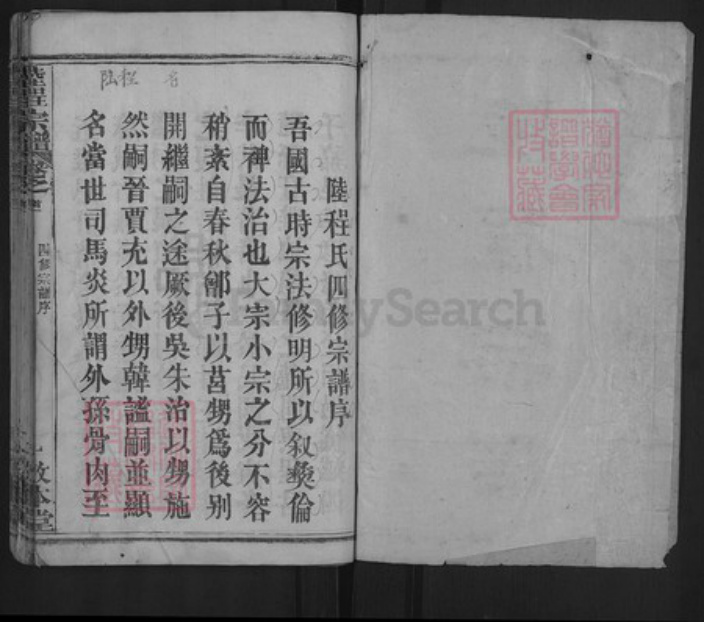 陸程氏四修宗譜序
吾國古時宗法修明所以叙彜倫
而裨法治也大宗小宗之分不容
稍紊自春秋鄫子以莒甥爲後别
開繼嗣之途厥後吳朱治以甥施
然嗣晉賈充以外甥韓謐嗣並顯
名當世司馬炎所謂外孫骨肉至
陸程
四修宗譜序
敦本堂
FamilySearch